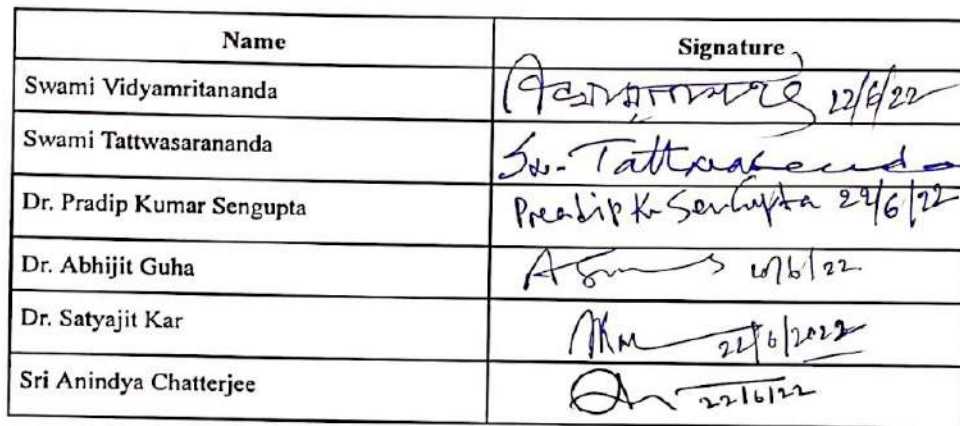 Name Signature
Swami Vidyamritananda 22/6/22
Swami Tattwasarananda Sw. Tattwasarananda
Dr. Pradip Kumar Sengupta Pradip Kr Sengupta 22/6/22
Dr. Abhijit Guha
Dr. Satyajit Kar 22/6/2022
Sri Anindya Chatterjee 22/6/22